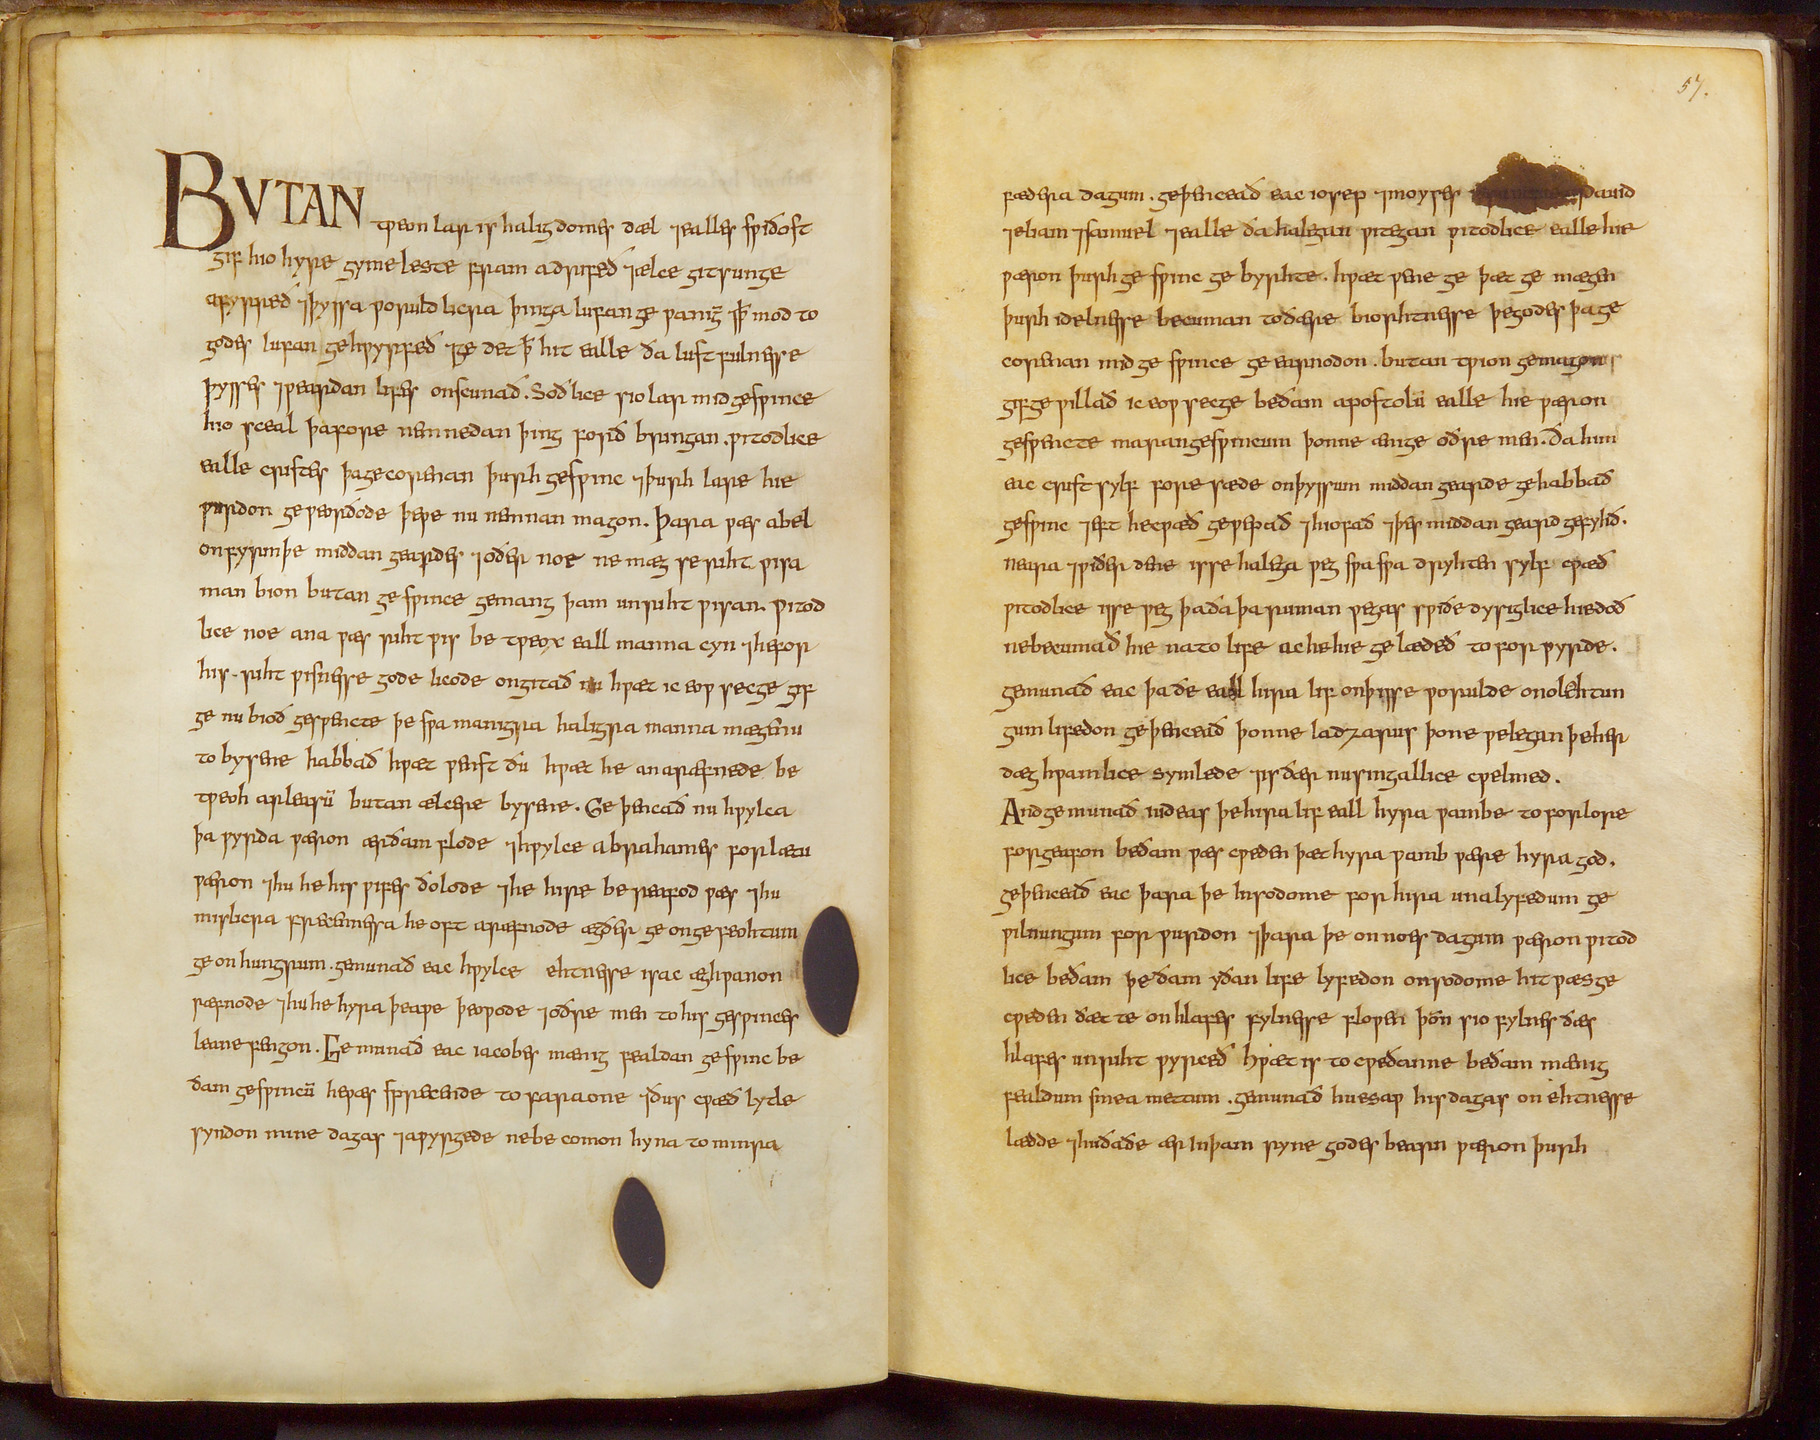 BVTAN tƿeon lar is haligdomes dæl ⁊ealles sƿiðost
gif hio hyre gymeleste fram adrifeð ⁊ælce gitsunge
afyrreð ⁊þyssa ƿoruldlicra þinga lufan geƿanig̅ ⁊ꝥ mod to
godes lufan gehƿyrfeð ⁊ge det ꝥ hit ealle ða lustfulnesse
þysses ⁊ƿeardan lifes onscunað. Soðlice sio lar mid gesƿince
hio sceal þa fore nemnedan þing forð brungan. ƿitodlice
ealle cræftes þa gecorenan þurh gesƿinc ⁊þurh lare hie
ƿurdon geƿeorðode þeƿe nu nemnan magon. Þara ƿæs abel
on frymþe middangeardes ⁊oðer noe ne mæg se riht ƿisa
man bion butan gesƿince gemang þam unriht ƿisan. ƿitod
lice noe ana ƿæs riht ƿis be tƿeox eall manna cyn ⁊he for
his riht ƿisnesse gode licode ongitað nu hƿæt ic eoƿ secge gif
ge nu bioð gesƿencte þe sƿa manigra haligra manna mægenu
to bysene habbað hƿæt ƿenst ðu hƿæt he anaræfnede be
tƿeoh arleasū butan ælcere bysene. Ge þencað nu hƿylca
þa ƿyrda ƿæron ær ðam flode ⁊hƿylce abrahames forlætu
ƿæron ⁊hu he his ƿifes ðolode ⁊he hire bereafod ƿæs ⁊hu
mislicra frecennessa he oft aræfnode ægðer ge on gefeohtum
ge on hungrum. gemunað eac hƿylce ehtnesse isac æghƿanon
ræfnode ⁊hu he hyra þeaƿe þeoƿode ⁊oðre men to his gesƿinces
leane fengon. Gemunað eac iacobes mænig fealdan gesƿinc be
ðam gesƿincū he ƿæs sƿrecende to faraone ⁊ðus cƿæð lytle
syndon mine dagas ⁊aƿyrgede ne be comon hy na to minra
57.
fædera dagum. geþenceað eac iosep ⁊moyses dauid
⁊eliam ⁊samuel ⁊ealle ða halegan ƿitegan ƿitodlice ealle hie
ƿæron þurh gesƿinc gebyrhte. hƿæt ƿene ge þæt ge mægen
þurh idelnesse becuman to ðære biorhtnesse þe godes þa ge
corenan mid gesƿince geearnodon. butan tƿion gemagon
gif ge ƿillað ic eoƿ secge be ðam apostolū ealle hie ƿæron
gesƿencte maran gesƿincum þonne ænge oðre men. Ða him
eac crist sylf fore sæde on þyssum middangearde gehabbað
gesƿinc ⁊eft he cƿæð geƿepað ⁊hiofað ⁊þes middangeard gefyhð.
nearu ⁊ƿiðer dene is se halega ƿeg sƿa sƿa dryhten sylf cƿæð
ƿitodlice is se ƿeg þa ða þa ruman ƿegas sƿiðe dysiglice hie doð
ne becumað hie na to life ac he hie gelædeð to forƿyrde.
gemunað eac þa ðe eall hira lif on þisse ƿorulde on olehtun
gum lifedon geþenceað þonne ladzarus þone ƿelegan þe hier
dæghƿamlice symlede ⁊is ðær nu singallice cƿelmed.
And gemunað iudeas þe hira lif eall hyra ƿambe to forlore
forgeafon be ðam ƿæs cƿeden þæt hyra ƿamb ƿære hyra god.
geþenceað eac þara þe in sodome for hira unalyfedum ge
ƿilnungum forƿurdon ⁊þara þe on noes dagum ƿæron ƿitod
lice be ðam þe ðam yðan life lyfedon on sodome hit ƿæs ge
cƿeden ðætte on hlafes fylnesse floƿen þon̅ sio fylnes ðæs
hlafes unriht ƿyrceð hƿæt is to cƿeðanne be ðam mænig
fealdum smea mettum. gemunað hu esaƿ his dagas on ehtnesse
lædde ⁊hu ða ðe ær in þam ryne godes bearn ƿæron þurh